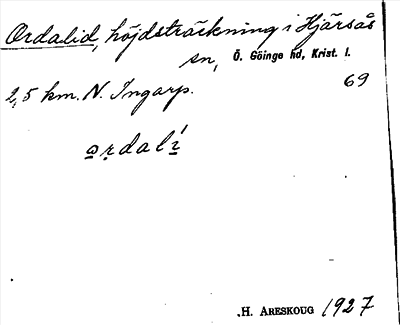 Ordalid, höjdsträckning i Hjärsås
sn, Ö. Göinge hd, Krist. l.
2,5 km. N. Ingarp. 69
ọrdalí
H. ARESKOUG 1927